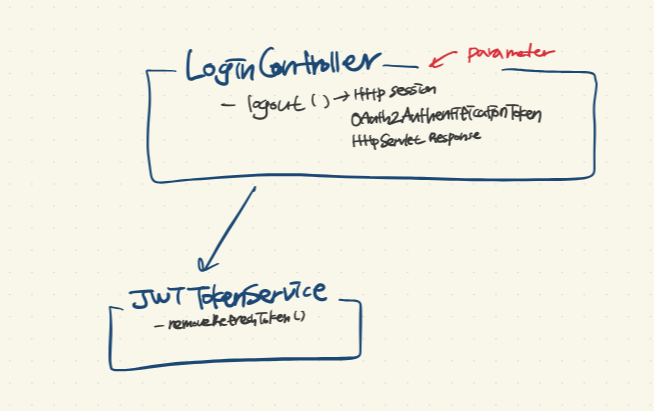 LoginController
parameter
- logout () → Http session
OAuth2AuthentificationToken
HttpServlet Response
JWT TokenService
- removeRefreshToken()